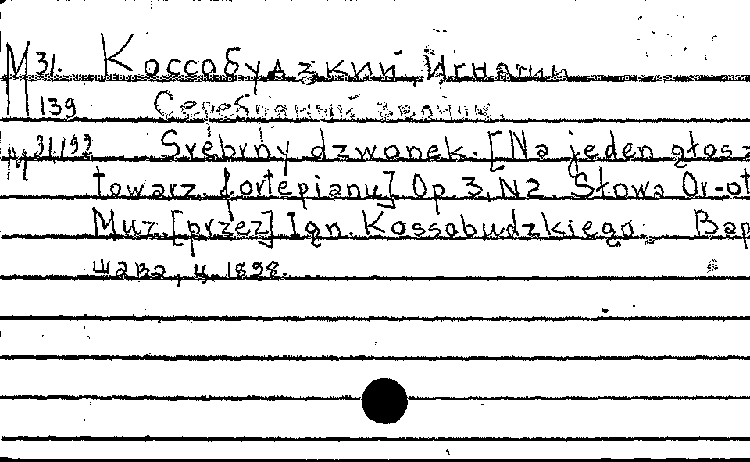 М 31. Коссобудзкий, Игнатий
139 Серебряный звонок.
М 31.192 Srebrny dzwonek. [Na jeden głos z
towarz. fortepianu] Op. 3, N2. Słowa Or-ot
Muz. [przez] Ign. Kossobudzkiego. Вар
шава, ц. 1898.